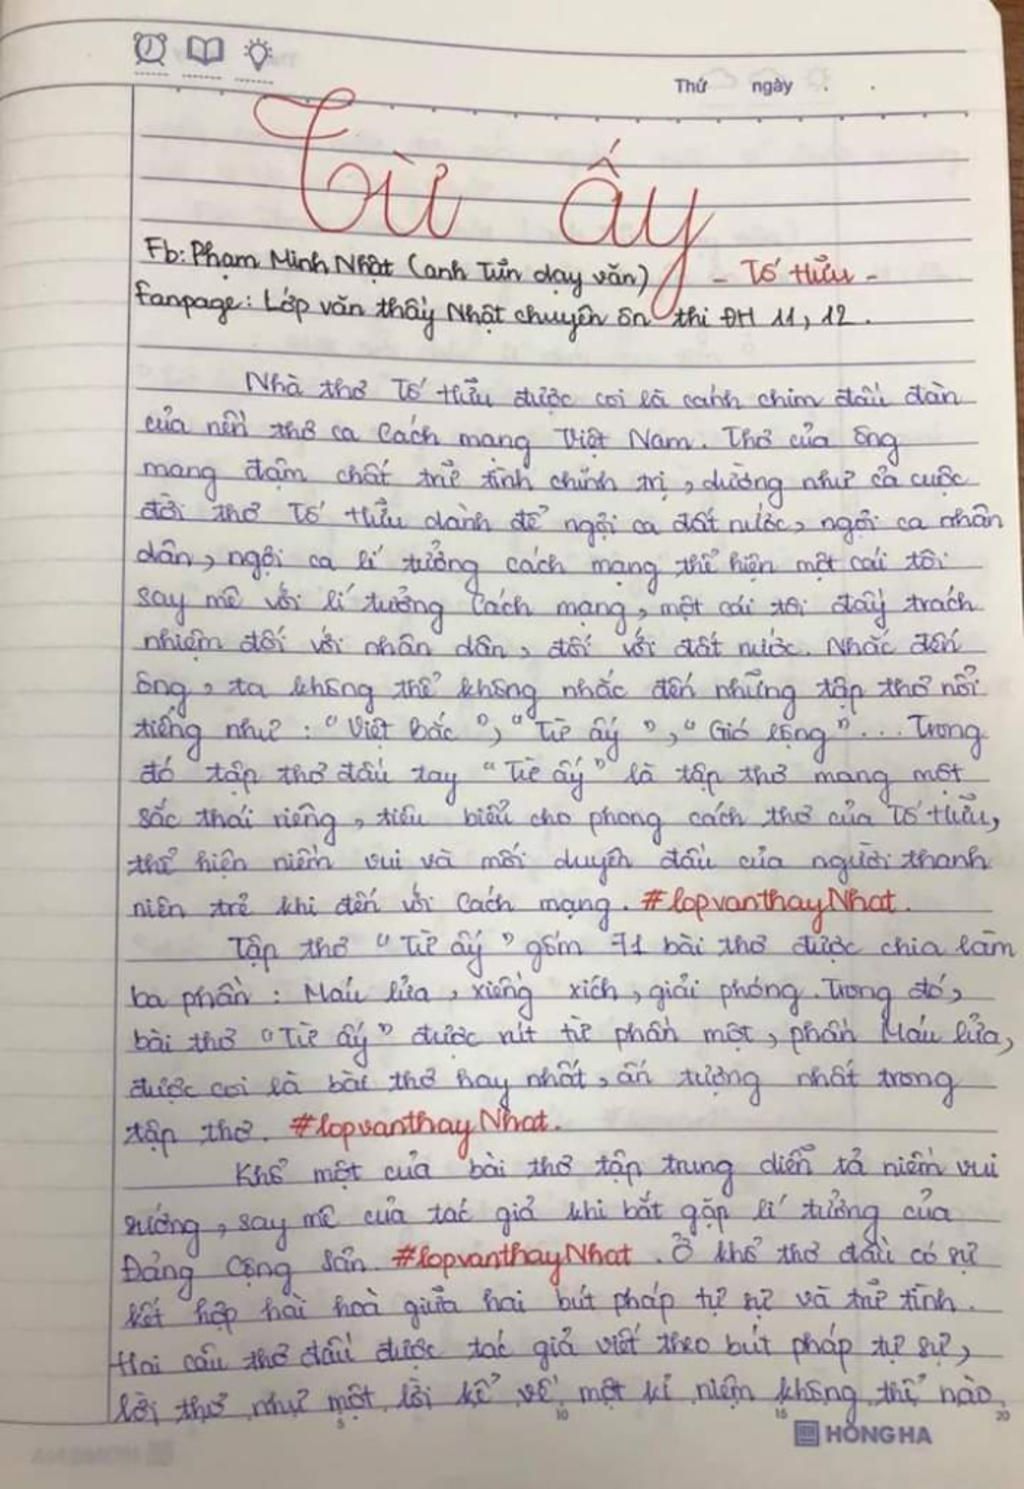 Thứ ngày
Từ ấy
Fb: Phạm Minh Nhật (anh Tun dạy văn) - Tố Hữu -
Fanpage: Lớp văn thầy Nhật chuyên ôn thi ĐH 11, 12.
Nhà thơ Tố Hữu được coi là cánh chim đầu đàn
của nền thơ ca Cách mạng Việt Nam. Thơ của ông
mang đậm chất trữ tình chính trị, dường như cả cuộc
đời thơ Tố Hữu dành để ngợi ca đất nước, ngợi ca nhân
dân, ngợi ca lí tưởng cách mạng thể hiện một cái tôi
say mê với lí tưởng Cách mạng, một cái tôi đầy trách
nhiệm đối với nhân dân, đối với đất nước. Nhắc đến
ông, ta không thể không nhắc đến những tập thơ nổi
tiếng như : "Việt Bắc", "Từ ấy", "Gió lộng"... Trong
đó tập thơ đầu tay "Từ ấy" là tập thơ mang một
sắc thái riêng, tiêu biểu cho phong cách thơ của Tố Hữu,
thể hiện niềm vui và mối duyên đầu của người thanh
niên trẻ khi đến với Cách mạng. #lopvanthayNhat.
Tập thơ "Từ ấy" gồm 71 bài thơ được chia làm
ba phần : Máu lửa, xiềng xích, giải phóng. Trong đó,
bài thơ "Từ ấy" được rút từ phần một, phần Máu lửa,
được coi là bài thơ hay nhất, ấn tượng nhất trong
tập thơ. #lopvanthayNhat.
Khổ một của bài thơ tập trung diễn tả niềm vui
sướng, say mê của tác giả khi bắt gặp lí tưởng của
Đảng Cộng Sản. #lopvanthayNhat. Ở khổ thơ đầu có sự
kết hợp hài hoà giữa hai bút pháp tự sự và trữ tình.
Hai câu thơ đầu được tác giả viết theo bút pháp tự sự,
lời thơ như một lời kể về một kỉ niệm không thể nào
5 10 15 20
HONG HA